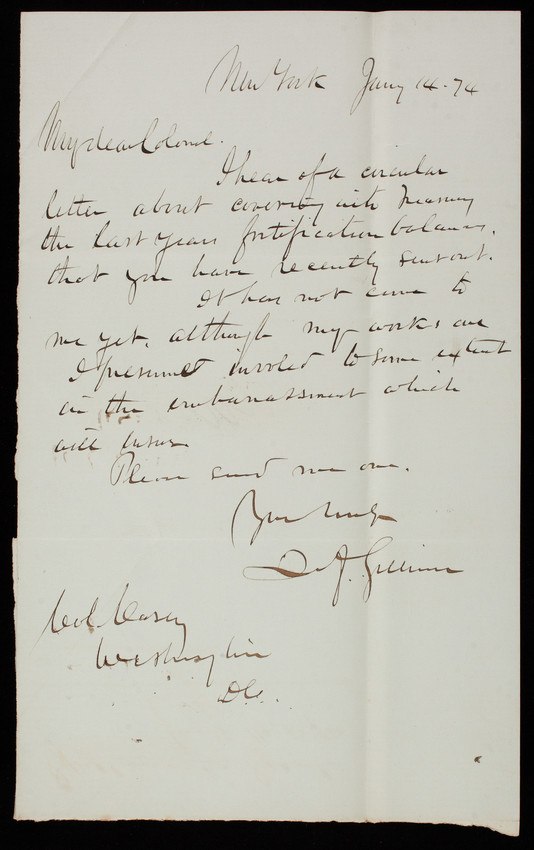 New York Jany 14-74
My dear Colonel.
I hear of a circular
letter about covering into Treasury
the last years fortification balances,
that you have recently sent out.
It has not come to
me yet, although my works are
I presume involved to some extent
in the embarrassment which
will ensue
Please send me one.
Yours truly
Q. A. Gillmore
Col Casey
Washington
DC.